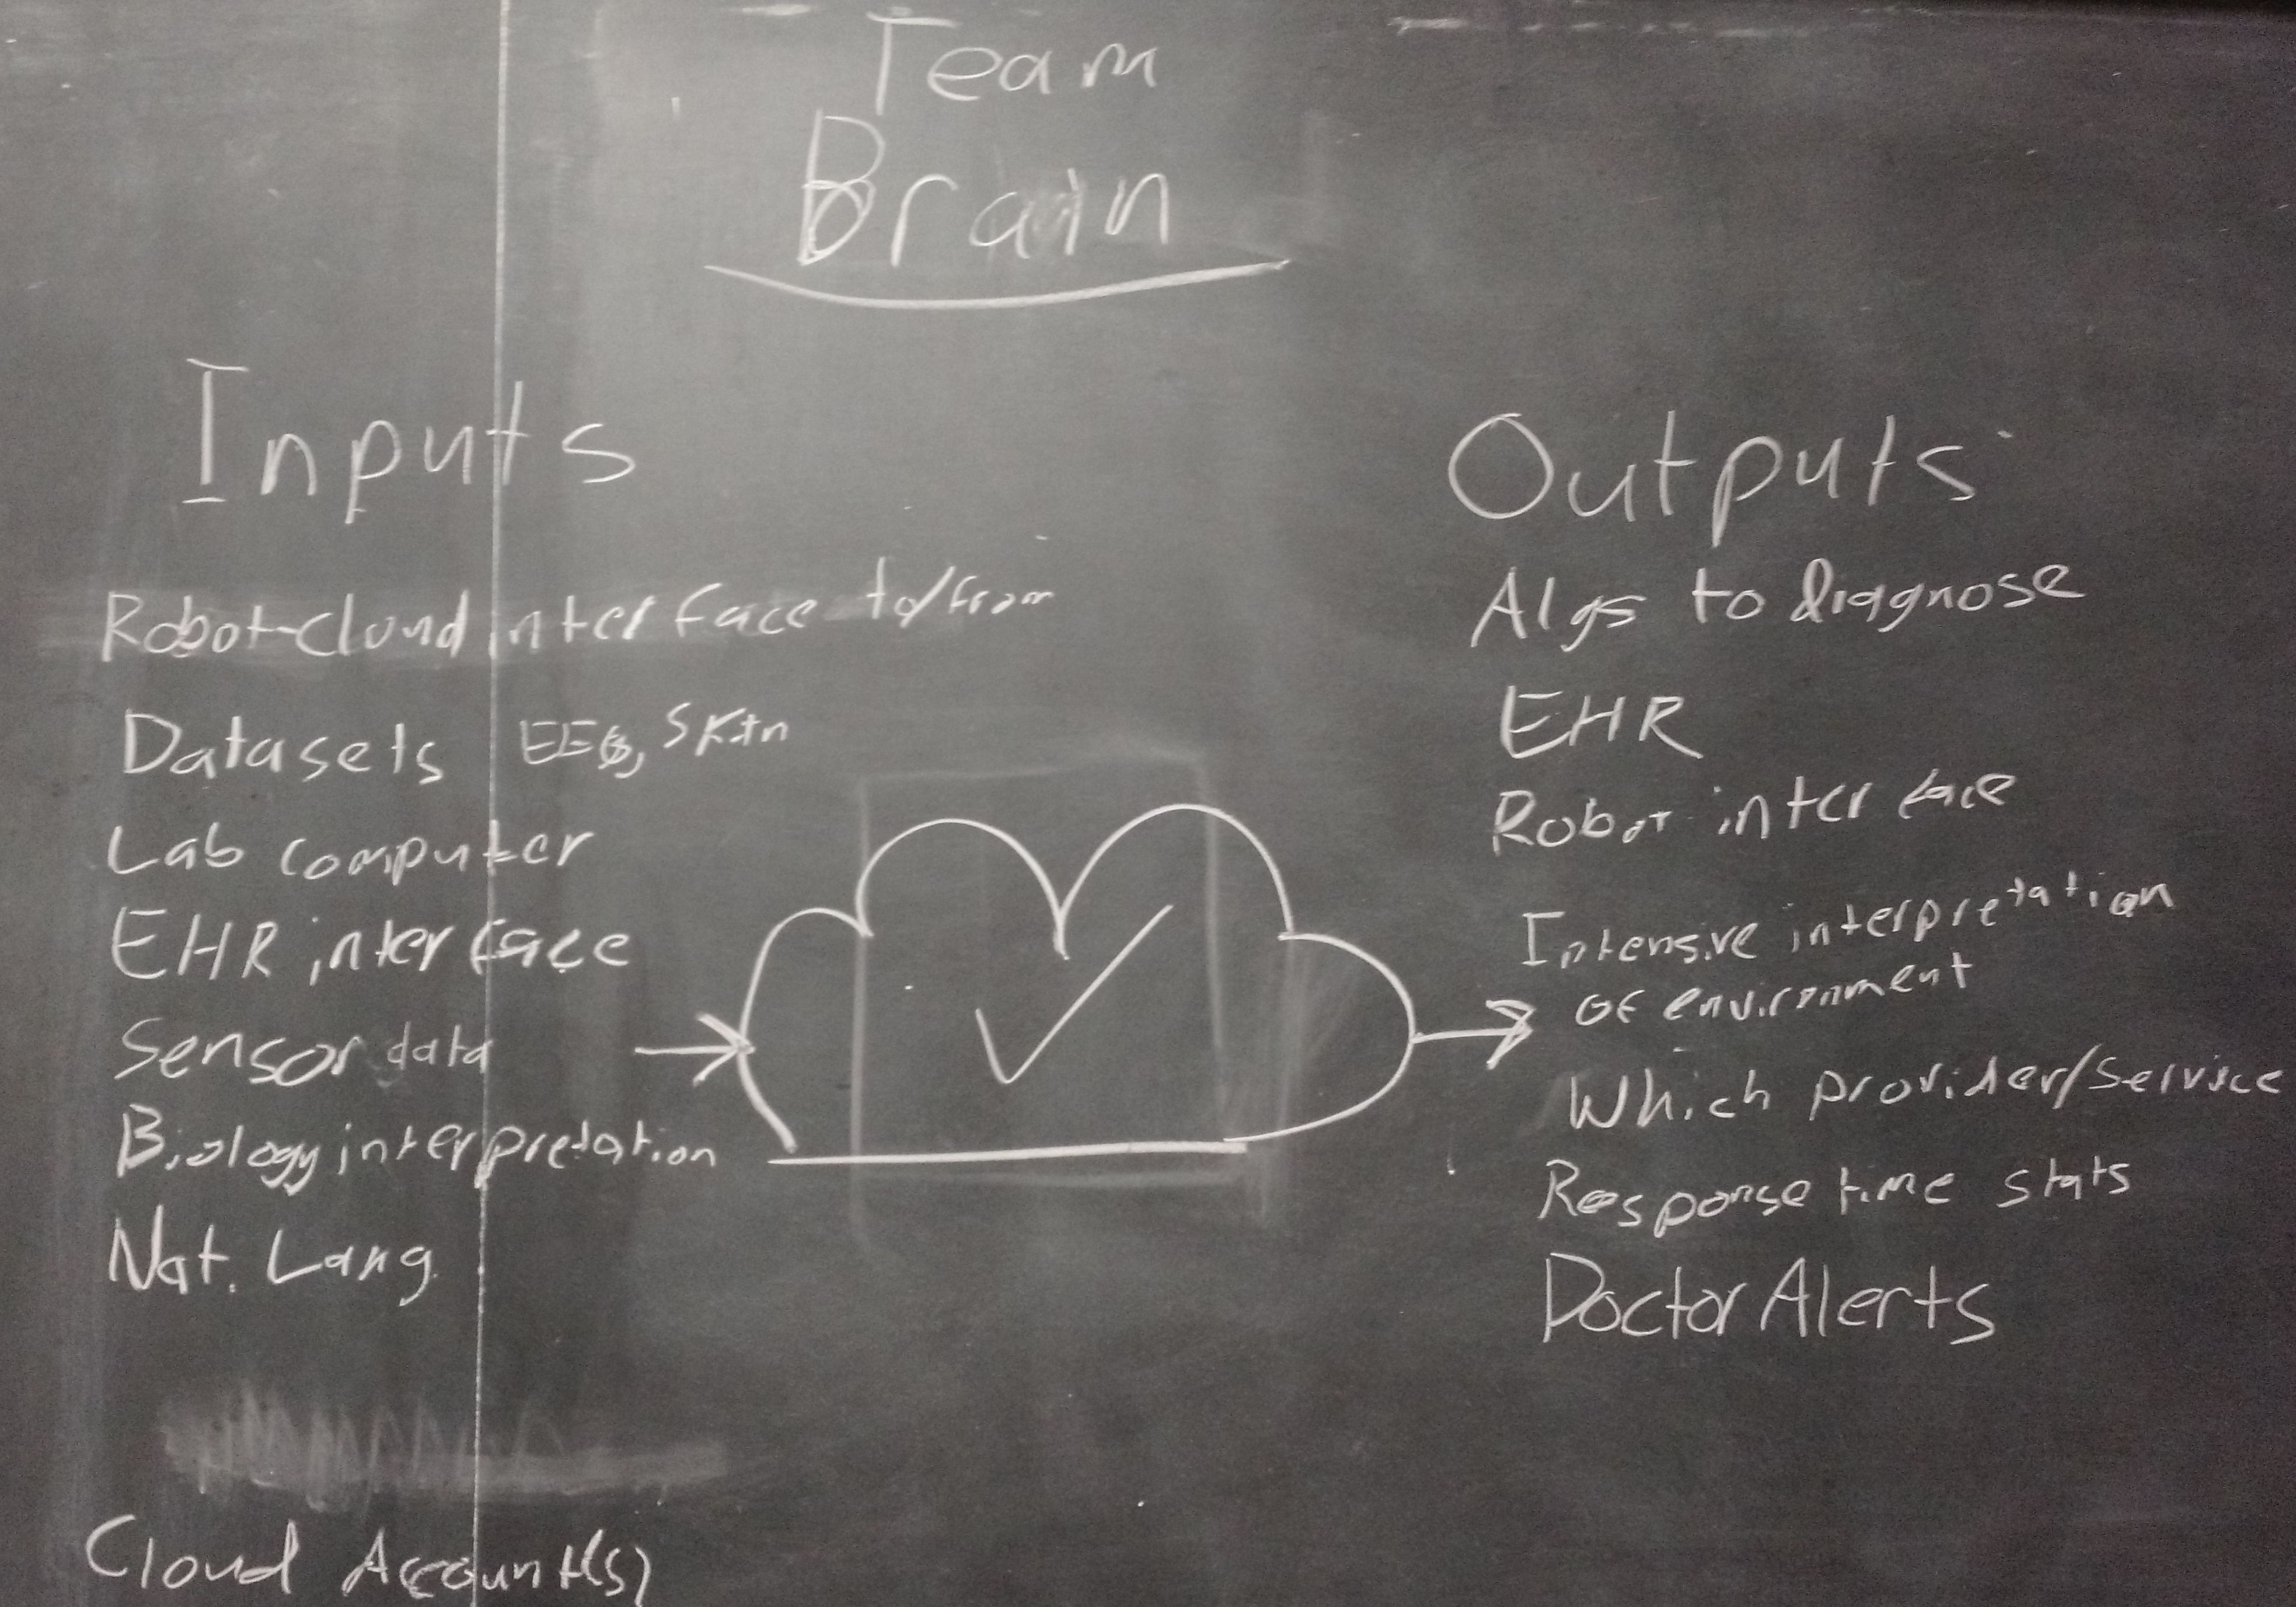 Team
Brain
Inputs
Robot-cloud interface to/from
Datasets EEG, Skin
Lab computer
EHR interface
Sensor data
Biology interpretation
Nat. Lang.
Cloud Account(s)
Outputs
Algs to diagnose
EHR
Robot interface
Intensive interpretation
of environment
Which provider/service
Response time stats
Doctor Alerts